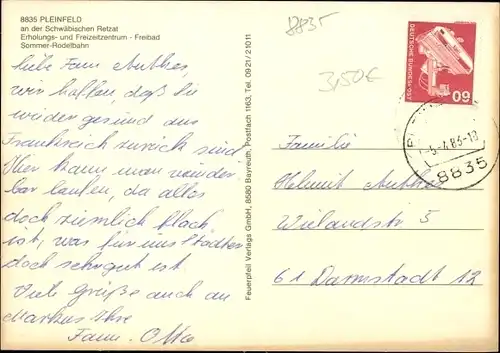 8835 PLEINFELD
an der Schwäbischen Retzat
Erholungs- und Freizeitzentrum - Freibad
Sommer-Rodelbahn
8835
3,50€
Liebe Fam. Anthes,
wir hoffen, daß Sie
wieder gesund aus
Frankreich zurück sind.
Hier kann man wunder
bar laufen, da alles
doch ziemlich flach
ist, was für uns Städter
doch sehr gut ist.
Viele Grüße auch an
Markus Ihre
Fam. Otto
Feuerpfeil Verlags GmbH, 8580 Bayreuth, Postfach 1163, Tel. 09 21 / 2 10 11
DEUTSCHE BUNDESPOST
60
-5.-4.83-18
8835
Familie
Helmut Anthes
Wielandstr. 5
61 Darmstadt 12